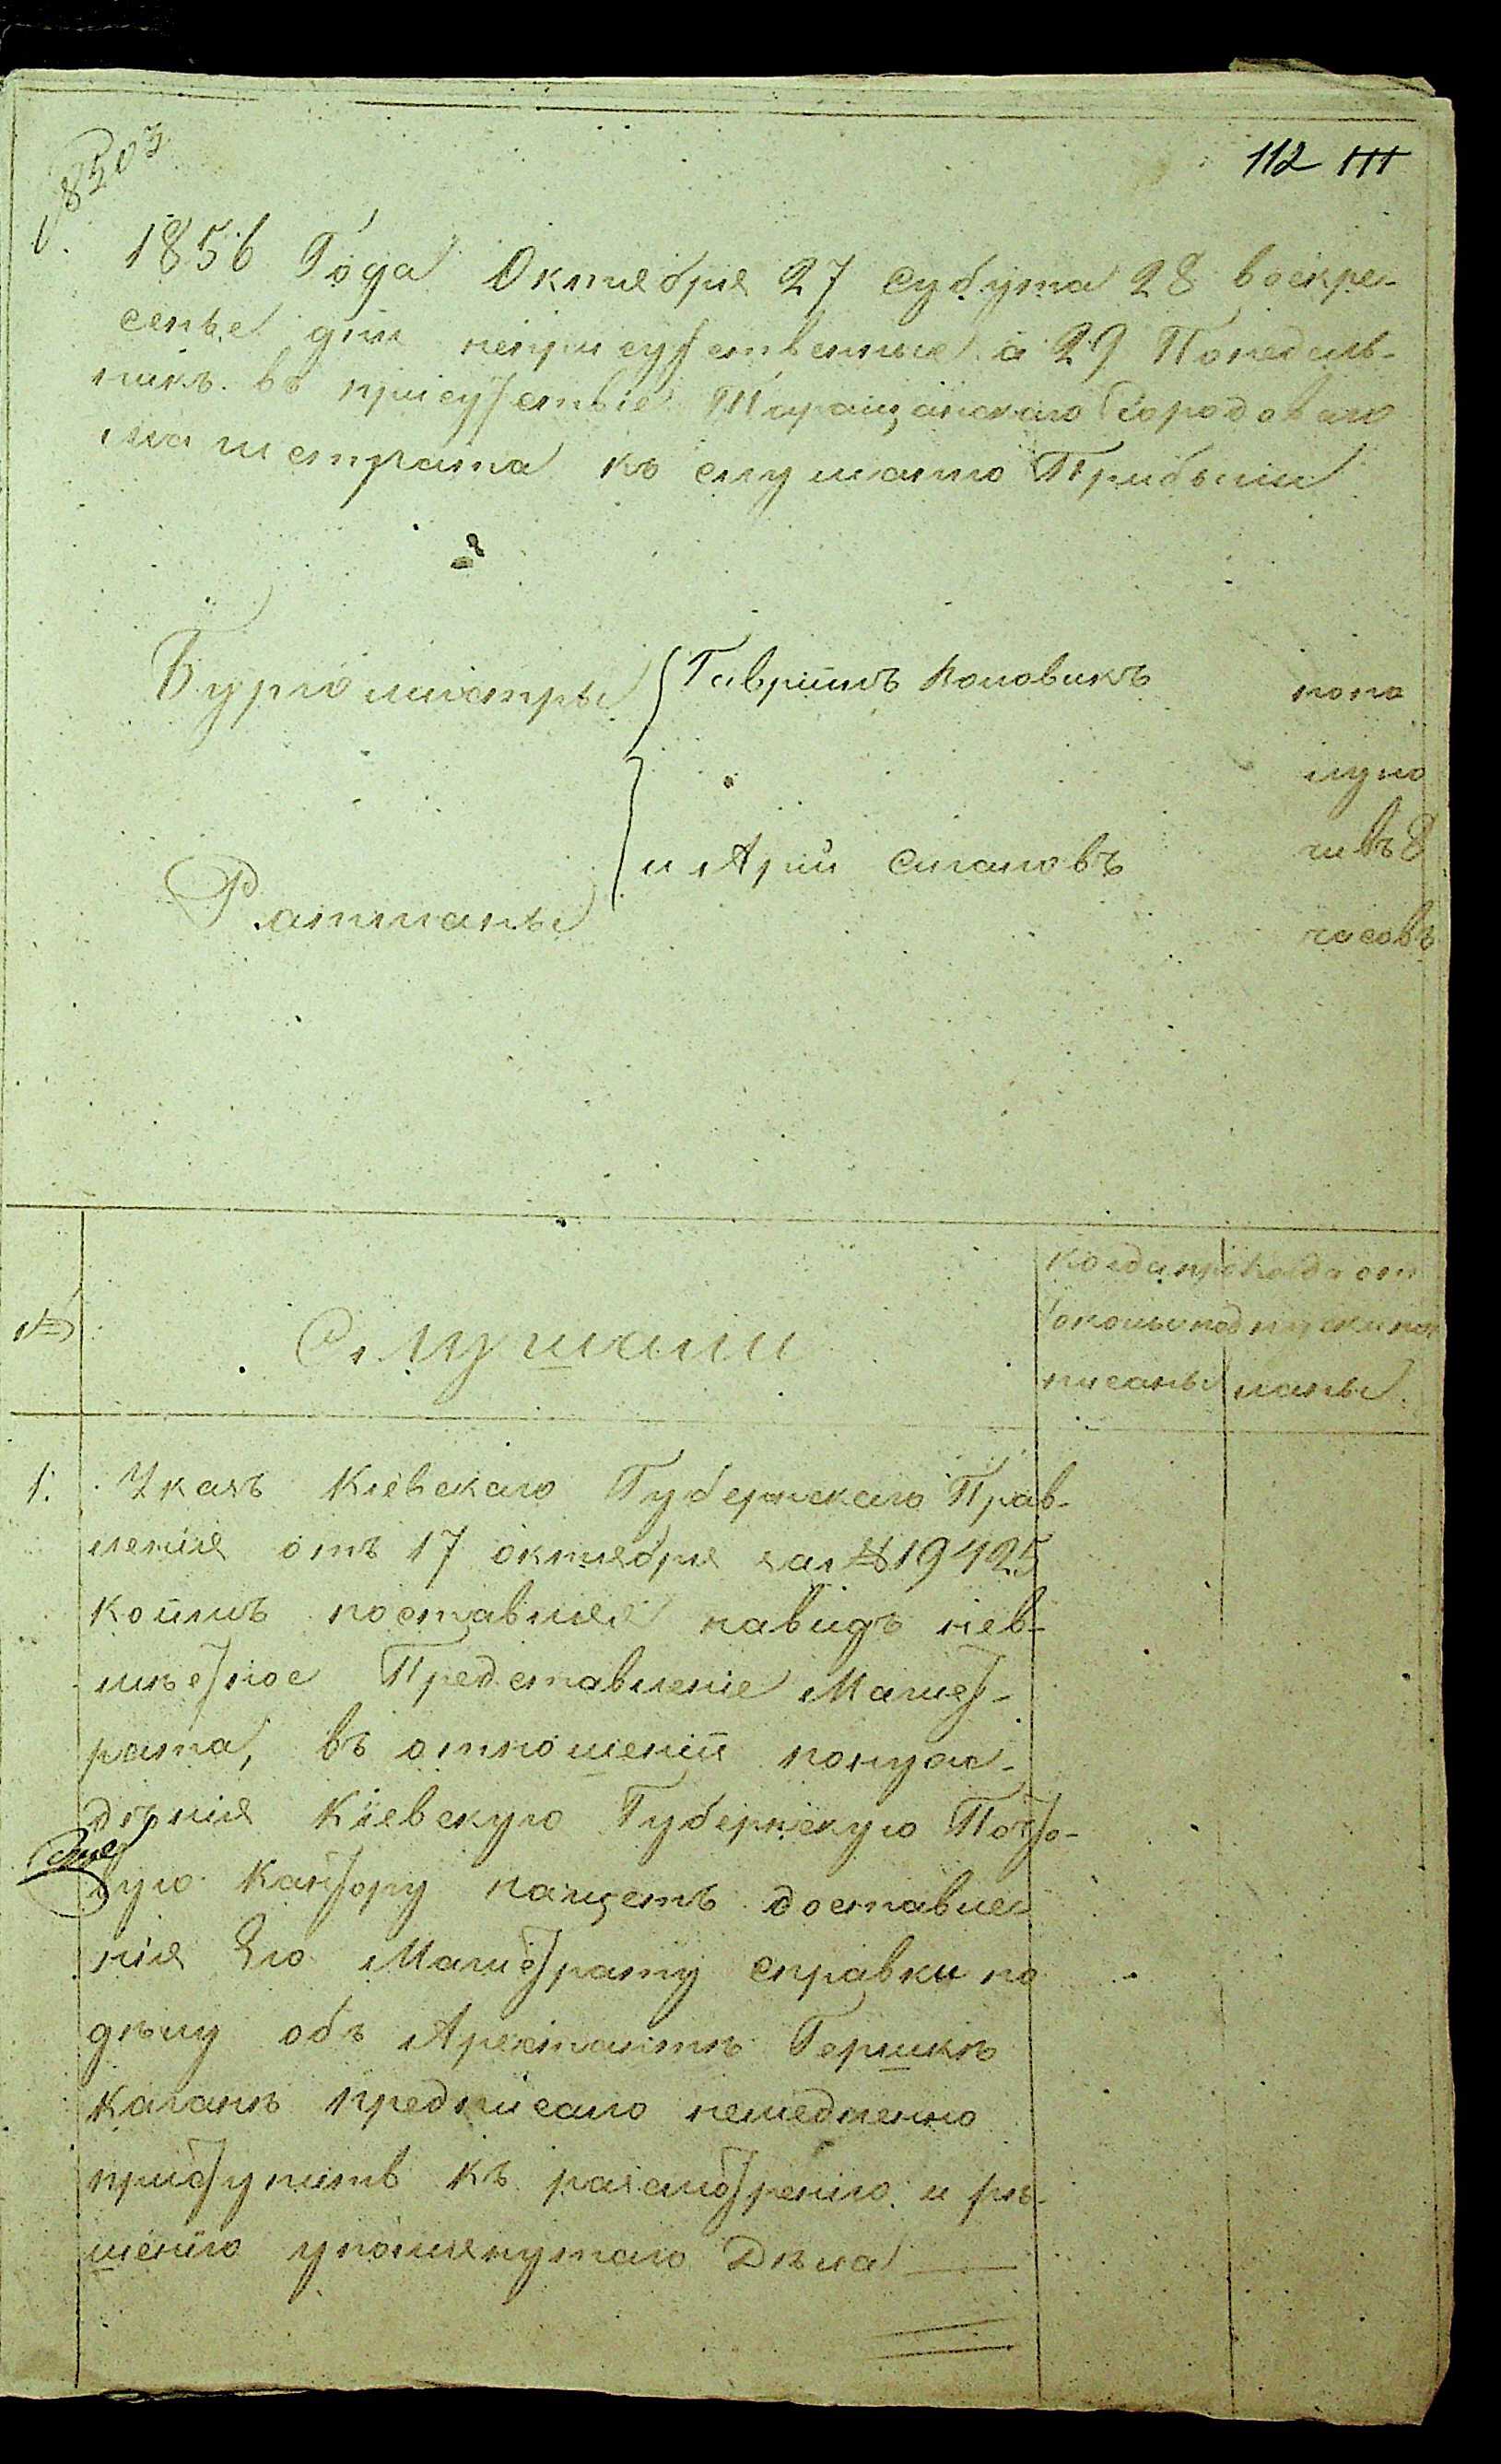 8503
112 111
1856 Года Октября 27 субута 28 воскре-
сенье дни неприсутственные а 29 Понедель-
никъ въ присутствіе Таращанскаго Городоваго
магистрата къ слушанію Прибыли
Бургомистры Гаврiилъ Коповикъ попо
луно
и Арiй чивъ 8
Ратманы часовъ
№ Слушали
когда про когда отъ
токолы под пуски пос
писаны ланы
1. Указъ Кіевскаго Губернскаго Прав-
ленія отъ 17 октября за № 19425
коимъ поставляя навидъ нев-
мѣстное Представленіе Магист-
рата, въ отношеніи понуж-
дѣнія Кіевскую Губернскую Почто-
вую Кантору нащетъ доставле-
нія Ею Магистрату справки по
дѣлу объ Арестантѣ Гершкѣ
Каганѣ предписало немедленно
приступить къ разсмотренію и рѣ-
шенію упомянутаго Дѣла